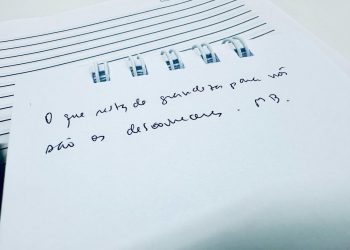 O que resta de grandeza para nós
são os desconheceres. M B.